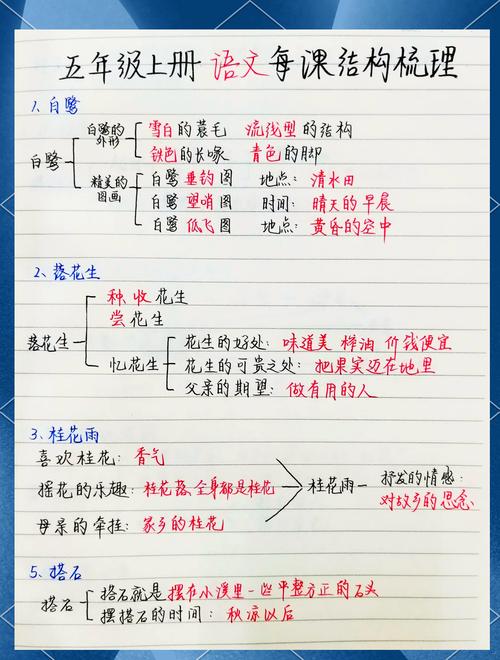 五年级上册 语文每课结构梳理
1、白鹭
白鹭
白鹭的外形
雪白的蓑毛 流线型的结构
铁色的长喙 青色的脚
精美的图画
白鹭垂钓图 地点：清水田
白鹭望哨图 时间：晴天的早晨
白鹭低飞图 地点：黄昏的空中
2、落花生
落花生
种、收花生
尝花生
忆花生
花生的好处：味道美 榨油 价钱便宜
花生的可贵之处：把果实迈在地里
父亲的期望：做有用的人
3、桂花雨
喜欢桂花：香气
摇花的乐趣：桂花落、全身都是桂花
母亲的牵挂：家乡的桂花
桂花雨
抒发的情感：
对故乡的思念
5、搭石
搭石
搭石就是摆在小溪里一些平整方正的石头
摆搭石的时间：秋凉以后